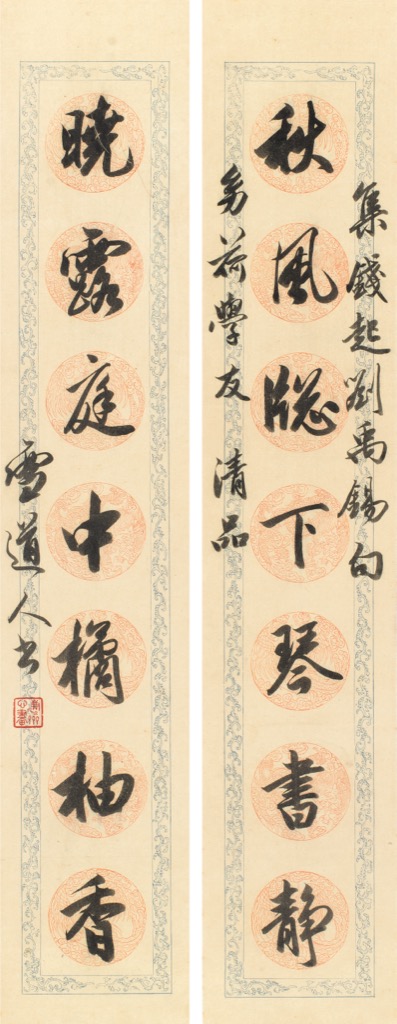 集錢起劉禹錫句
秋風牕下琴書靜
荷學友 清品
曉露庭中橘柚香
雪道人書